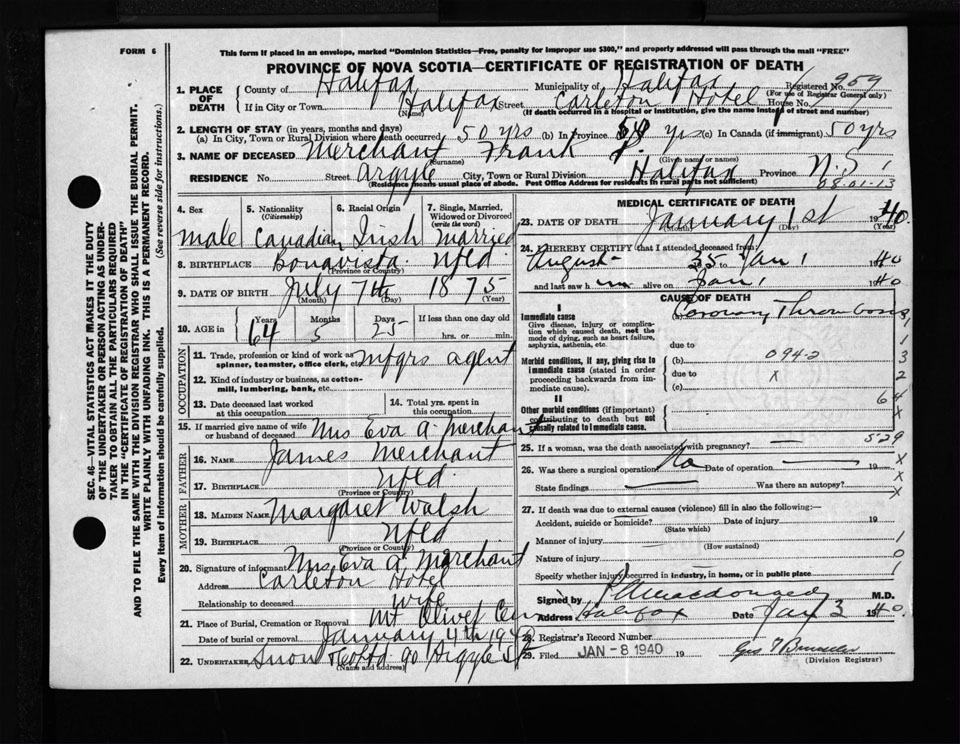 FORM 6
This form if placed in an envelope, marked "Dominion Statistics—Free, penalty for improper use $300," and properly addressed will pass through the mail "FREE"
PROVINCE OF NOVA SCOTIA—CERTIFICATE OF REGISTRATION OF DEATH
1. PLACE OF DEATH County of Halifax Municipality of Halifax Registered No. 959
(For use of Registrar General only)
If in City or Town Halifax Street Carleton Hotel House No.
(Name) (If death occurred in a hospital or institution, give the name instead of street and number)
2. LENGTH OF STAY (in years, months and days)
(a) In City, Town or Rural Division where death occurred 50 yrs (b) In Province yrs (c) In Canada (if immigrant) 50 yrs
3. NAME OF DECEASED Merchant Frank J.
(Surname) (Given name or names)
RESIDENCE No. Street Argyle City, Town or Rural Division Halifax Province N.S.
(Residence means usual place of abode. Post Office Address for residents in rural parts not sufficient) 08.01.13
4. Sex 5. Nationality (Citizenship) 6. Racial Origin 7. Single, Married, Widowed or Divorced (write the word)
male Canadian Irish married
8. BIRTHPLACE Bonavista Nfld.
(Province or Country)
9. DATE OF BIRTH July 7th 1875
(Month) (Day) (Year)
10. AGE in Years Months Days If less than one day old
64 5 25 hrs. or min.
OCCUPATION
11. Trade, profession or kind of work as spinner, teamster, office clerk, etc. mfgrs agent
12. Kind of industry or business, as cotton-mill, lumbering, bank, etc.
13. Date deceased last worked at this occupation 14. Total yrs. spent in this occupation
15. If married give name of wife or husband of deceased Mrs Eva A. Merchant
FATHER
16. NAME James Merchant
17. BIRTHPLACE Nfld.
(Province or Country)
MOTHER
18. MAIDEN NAME Margaret Walsh
19. BIRTHPLACE Nfld
(Province or Country)
20. Signature of informant Mrs Eva A. Merchant
Address Carleton Hotel
Relationship to deceased wife
21. Place of Burial, Cremation or Removal Mt Olivet Cem
Date of burial or removal January 4th 1940
22. UNDERTAKER Snow & Co Ltd 90 Argyle St
(Name and address)
MEDICAL CERTIFICATE OF DEATH
23. DATE OF DEATH January 1st 1940
(Month) (Day) (Year)
24. I HEREBY CERTIFY that I attended deceased from
August 35 to Jan 1 1940
and last saw him alive on Jan 1 1940
CAUSE OF DEATH
I
Immediate cause Coronary Thrombosis
Give disease, injury or complication which caused death, not the mode of dying, such as heart failure, asphyxia, asthenia, etc.
due to 1
Morbid conditions, if any, giving rise to immediate cause (stated in order proceeding backwards from immediate cause).
(b) 094-2 3
due to X 2
(c)
II 64
Other morbid conditions (if important) contributing to death but not causally related to immediate cause. X
25. If a woman, was the death associated with pregnancy? — 529
26. Was there a surgical operation? No Date of operation — 19 X
State findings — Was there an autopsy? X
27. If death was due to external causes (violence) fill in also the following:—
Accident, suicide or homicide? Date of injury 19
(State which)
Manner of injury 1
(How sustained)
Nature of injury 0
Specify whether injury occurred in industry, in home, or in public place 1
Signed by Macdonald M.D.
Address Halifax Date Jan 3 1940.
28. Registrar's Record Number
29. Filed JAN - 8 1940 19
(Division Registrar)
SEC. 46—VITAL STATISTICS ACT MAKES IT THE DUTY
OF THE UNDERTAKER OR PERSON ACTING AS UNDERTAKER TO OBTAIN ALL THE PARTICULARS REQUIRED
IN THE "CERTIFICATE OF REGISTRATION OF DEATH"
AND TO FILE THE SAME WITH THE DIVISION REGISTRAR WHO SHALL ISSUE THE BURIAL PERMIT.
WRITE PLAINLY WITH UNFADING INK. THIS IS A PERMANENT RECORD.
Every item of Information should be carefully supplied. (See reverse side for instructions.)